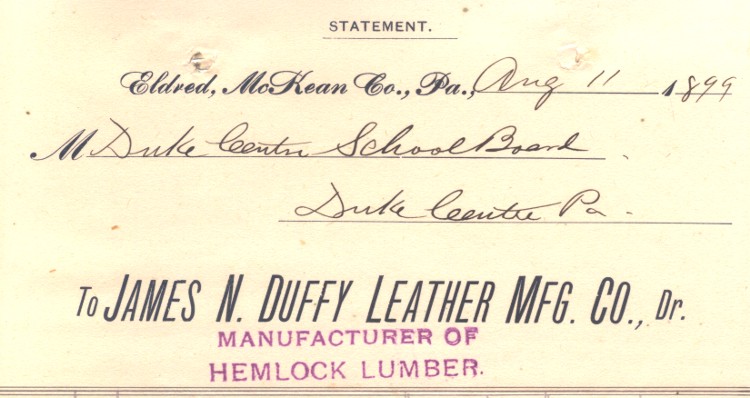 STATEMENT.
Eldred, McKean Co., Pa., Aug 11 1899
M Duke Centre School Board
Duke Centre Pa.
To JAMES N. DUFFY LEATHER MFG. CO., Dr.
MANUFACTURER OF
HEMLOCK LUMBER.